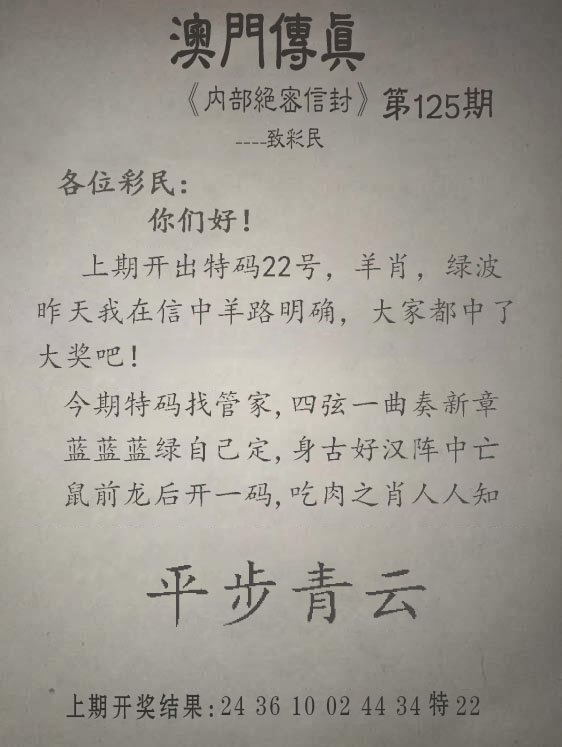 澳門傳真
《内部絕密信封》第125期
----致彩民
各位彩民：
你们好！
上期开出特码22号，羊肖，绿波
昨天我在信中羊路明确，大家都中了
大奖吧！
今期特码找管家,四弦一曲奏新章
蓝蓝蓝绿自己定,身古好汉阵中亡
鼠前龙后开一码,吃肉之肖人人知
平步青云
上期开奖结果:24 36 10 02 44 34 特 22